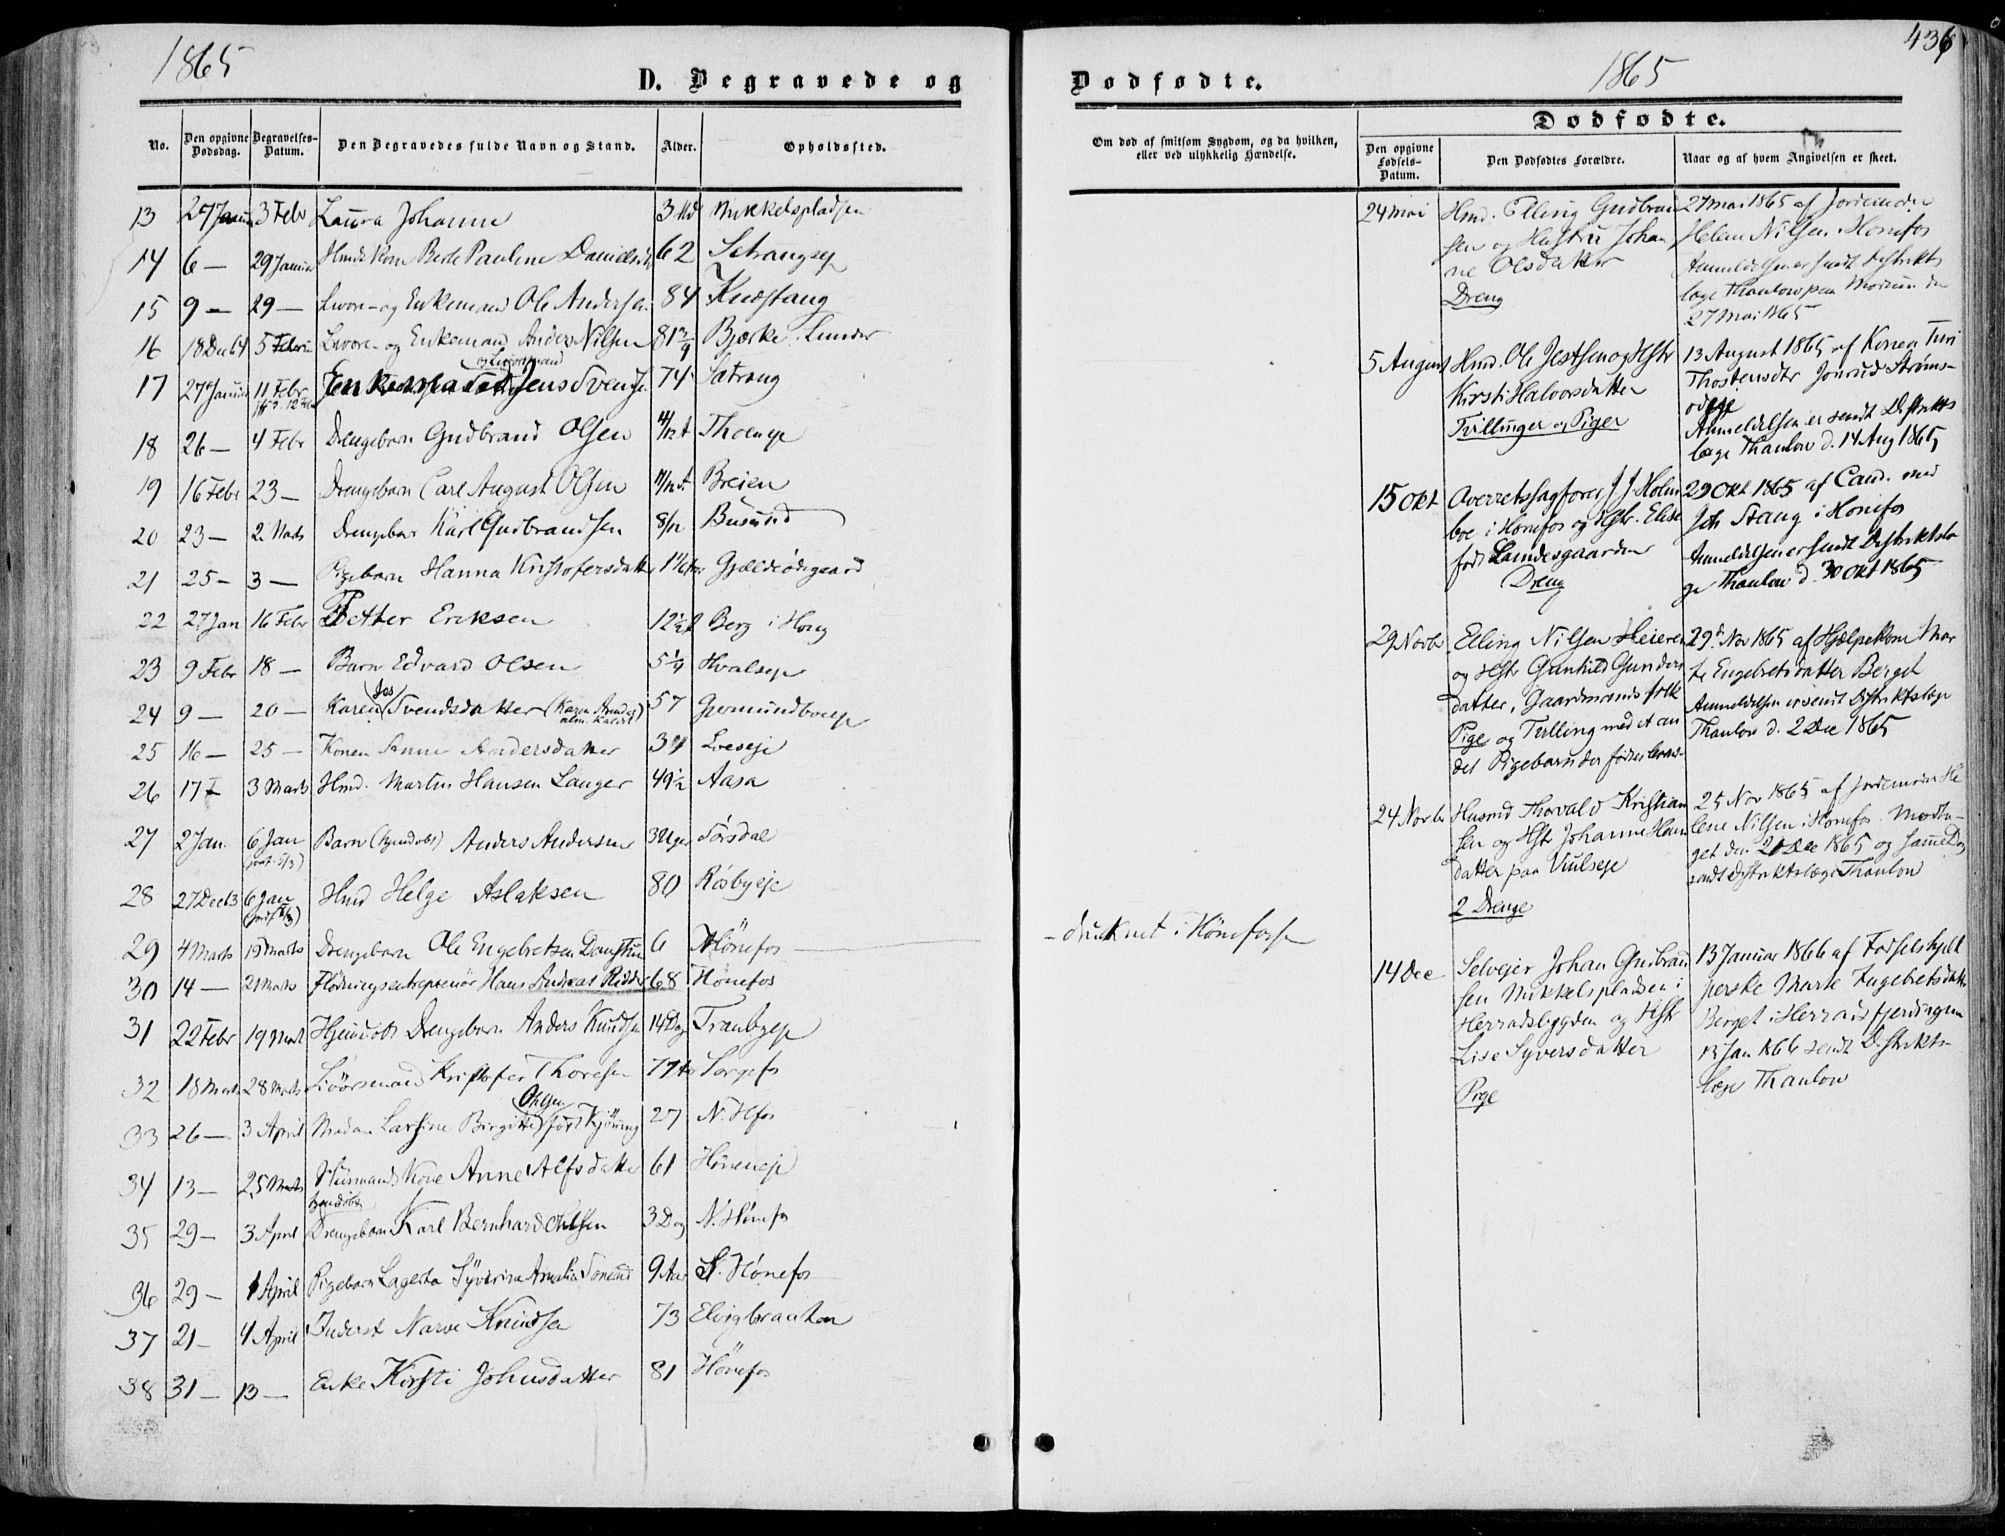 1865
D. Begravede og
No. Den opgivne Dødsdag. Begravelses-Datum. Den Begravedes fulde Navn og Stand. Alder. Opholdssted.
13 27 Januar 3 Febr Laura Johanne 3 Md Mikkelspladsen
14 6 — 29 Januar Berte Pauline 62
15 9 — 29 — Enkemand Ole Andersen 84 Knestang
16 18 Dec 64 5 og Enkemand Anders Nilsen 81 Bjørke Lunder
og Livøremand
17 27 Januar 11 Febr Enkemand Jens Svends. 74 Setrang
18 26 — 4 Febr Drengebarn Gudbrand Olsen
19 16 Febr 23 — Drengebarn Carl August Olsen 11/12 A. Breien
20 23 — 2 Marts Drengebar Karl Gudbrandsen 8/12 Busund
21 25 — 3 — Pigebarn Hanna Kristofersdatter Gjeldeødegaard
22 27 Jan 16 Febr Petter Eriksen 12 1/2 Berg i Houg
23 9 Febr 18 — Barn Edvard Olsen 5 1/4 Hvalseje
24 9 — 20 — Karen Svendsdatter (Karen alm. kaldet) 57
25 16 — 25 — Konen Anne Andersdatter 34
26 17 3 Marts Hmd. Martin Hansen Langer 49 1/2 Aasa
27 2 Jan. 6 Jan Barn (hjemdøbt) Anders Andersen 3 Uger Sørsdal
28 27 Dec 63 6 Jan Hmd Helge Aslaksen 80 Røsbyeje
29 4 Marts 19 Marts Drengebarn Ole Engebretsen 6 Hönefos
30 14 — 21 Marts Flødningsentreprenør Hans Andreas Ridder 68 Hönefos
31 22 Febr 19 Mart Hjemdøbt Drengebarn Anders Knudsen 14 Dag Tranbyeje
32 18 Marts 28 Marts Kristofer Thoresen 77
Ohlsen
33 26 — 3 April Madam Larsine Birgitte født 27 N. Hfos
34 13 — 25 Marts Husmands Kone Anne Alfsdatter 61 Höneneje
hjemdøbt
35 29 — 3 April Drengebarn Karl Bernhard Ohlsen 3 Dag N. Hönefos
36 29 — 1 April Pigebarn Lagerta Syverine Amalia 9 Aar S. Hönefos
37 21 — 4 April Inderst Narve Knudsen 73
38 31 — 13 — Enke Kirsti Johnsdatter 81 Hönefos
436
Dodfodte.
1865
Om død af smitsom Sygdom, og da hvilken, eller ved ulykkelig Hændelse.
Dodfodte.
Den opgivne Fødsels-Datum. Den Dodfødtes Forældre. Naar og af hvem Angivelsen er skeet.
- druknet i Hönefossen
24 Mai
Hmd. Elling Gudbran
sen og Hustru Johan
ne Olsdatter
Dreng
27 Mai 1865 af Jordemoder
Helene Nilsen Hönefos
Anmeldelsen er sendt Distrikts
læge Thaulow paa Modum den
27 Mai 1865
5 August
Hmd. Ole og Hstr
Kirsti Halvorsdatter
Tvillinger og Piger
13 August 1865 af Konen Turi
Thostensdtr Strøms-
odeje
Anmeldelsen er sendt Distrikts
læge Thaulow d. 14 Aug 1865
15 Okt
Overretssagfører J J Holm
boe i Hönefos og Hstr. Elise
født Lundesgaard
Dreng
29 Okt 1865 af Cand. med
Stang i Hönefos
Anmeldelsen er sendt Distriktslæ
ge Thaulow d. 30 Okt 1865
29 Novbr
Elling Nilsen Heieren
og Hstr Gunhild Gunders
datter, Gaardmandsfolk
Pige og Tvilling med et an
det Pigebarn der fødtes
29 Nov 1865 af Hjælpekone Mar
te Engebretsdatter Berget
Anmeldelsen er sendt Distriktslæge
Thaulow d. 2 Dec 1865
24 Novbr
Husmd Thorvald Kristian
sen og Hstr Johanne Hans
datter paa
2 Drenge
25 Nov 1865 af Jordemoder He
lene Nilsen i Hönefos. Modta-
get den 20 Dec 1865 og samme Dag
sendt Distriktslæge Thaulow
14 Dec
Selvejer Johan Gudbrand
sen Mikkelspladsen i
Herradsbygden og Hstr
Lise Syversdatter
Pige
13 Januar 1866 af Fødselshjel
perske Marte Engebretsdatter
Berget i Herradsfjerdingen
13 Jan 1866 sendt Distrikts-
læge Thaulow